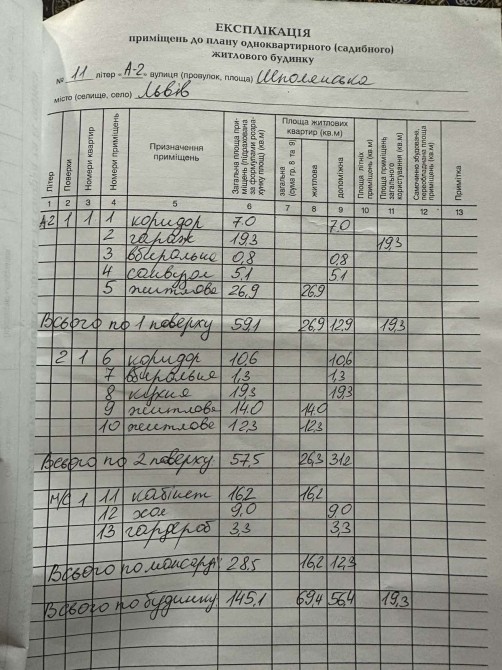 ЕКСПЛІКАЦІЯ
приміщень до плану одноквартирного (садибного)
житлового будинку
№ 11 літер «А-2» вулиця (провулок, площа) Шполянська
місто (селище, село) Львів
Літер Поверхи Номери квартир Номери приміщень Призначення приміщень Загальна площа приміщень (підрахована за формулами розрахунку площ) (кв.м) Площа житлових квартир (кв.м) загальна (сума гр. 8 та 9) житлова допоміжна Площа літніх приміщень (кв.м) Площа приміщень загального користування (кв.м) Самочинно збудована, переобладнана площа приміщень (кв.м) Примітка
1 2 3 4 5 6 7 8 9 10 11 12 13
А2 1 1 1 коридор 7.0 7.0
2 гараж 19,3 19,3
3 вбиральня 0,8 0,8
4 санвузол 5.1 5.1
5 житлова 26,9 26,9
Всього по 1 поверху 59,1 26,9 12,9 19,3
2 1 6 коридор 10,6 10,6
7 вбиральня 1,3 1,3
8 кухня 19,3 19,3
9 житлова 14.0 14.0
10 житлова 12,3 12,3
Всього по 2 поверху 57,5 26,3 31,2
М/С 1 11 кабінет 16,2 16,2
12 хол 9,0 9.0
13 гардероб 3,3 3,3
Всього по мансарді 28,5 16,2 12,3
Всього по будинку 145,1 69,4 56,4 19,3